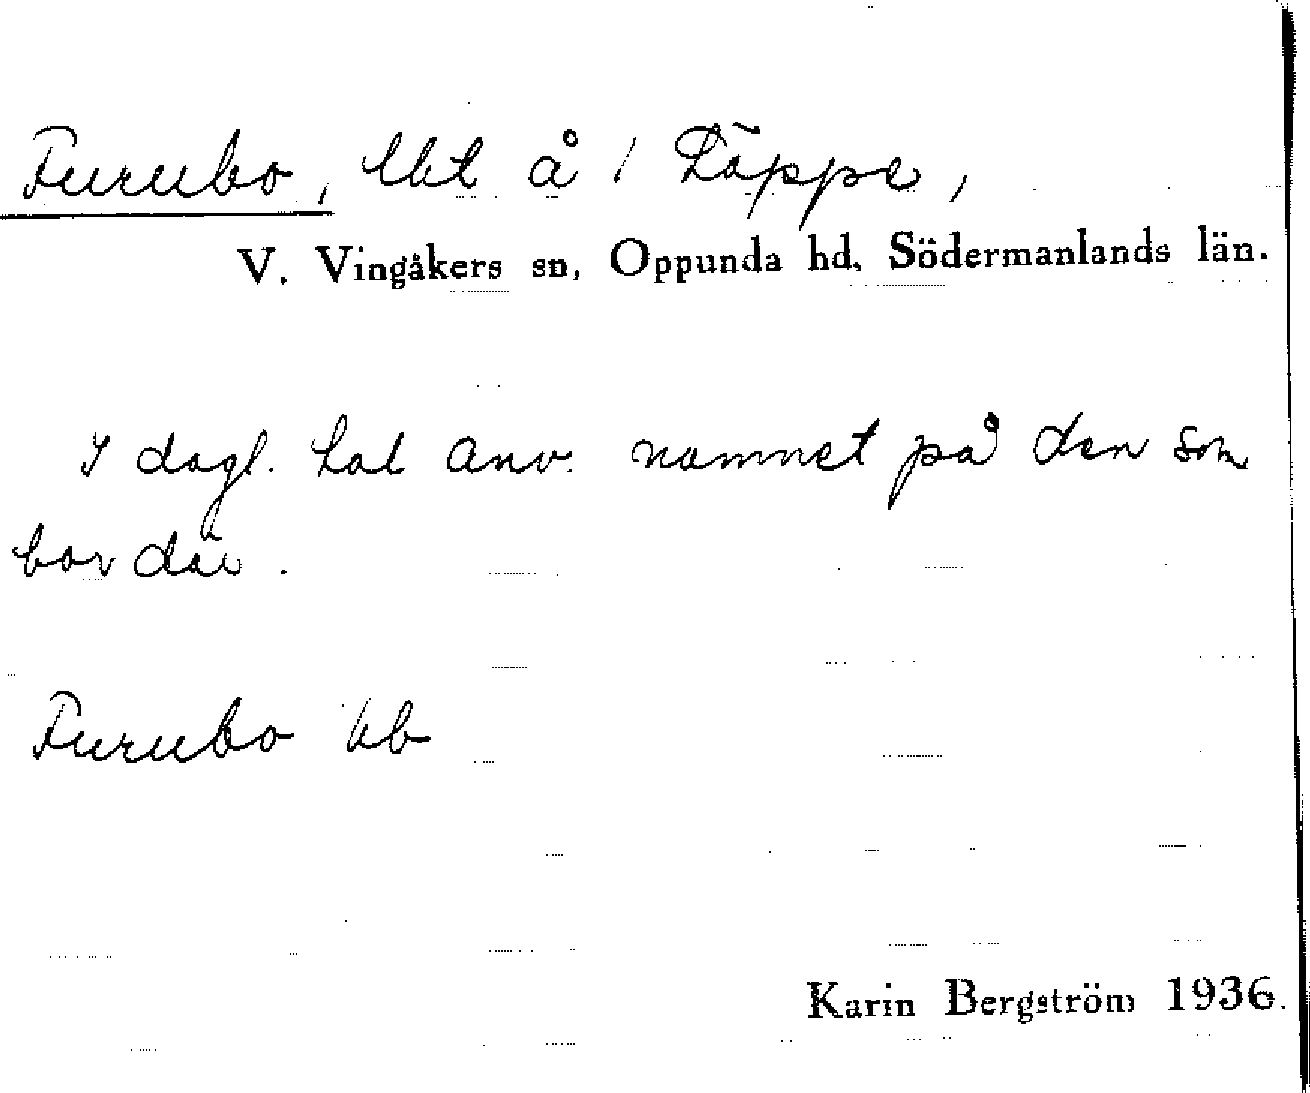 Furubo, lht å 1 Läppe,
V. Vingåkers sn, Oppunda hd, Södermanlands län.
I dagl. tal anv. namnet på den som
bor där.
Furubo kb
Karin Bergström 1936.